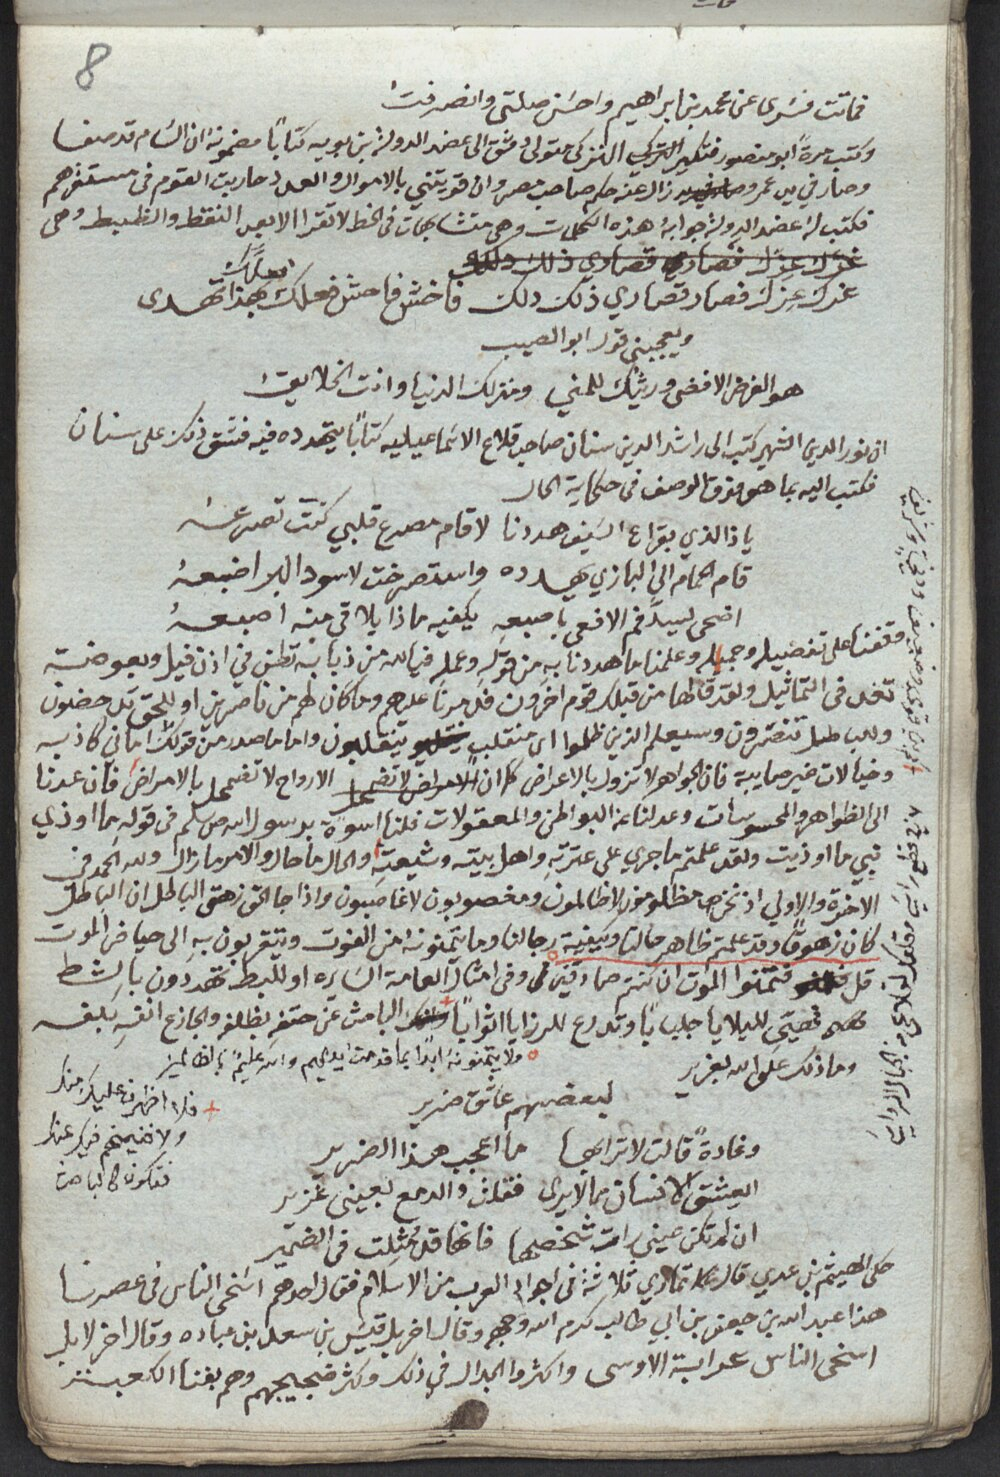 8
فماتت فسرى عن محمد بن ابراهيم واحسن صلتي وانصرفت
وكتب مرةً ابو منصور فتكين التركي متولى دمشق الى عضد الدولة بن بويه كتاباً مضمونه ان الشام قد صفا
وصار في يدي وزال عنه حكم صاحب مصر وان قويتني بالاموال والعدد حاربت القوم في مستقرهم
فكتب له عضد الدولة جوابهُ هذه الكلمات وهي متشابهات في الخط لا تقرا الا بعد النقط والضبط وهي
غرك عزك فصار قصاري ذلك ذلك
غرك عزك فصار قصاري ذلك ذلك فاخش فاحش فعلك فعلك بهذا تهدى
ويعجبني قول ابو الطيب
هو الغرض الاقصى ورؤيتك المني ومنزلك الدنيا وانت الخلايق
ان نور الدين الشهير كتب الى راشد الدين سنان صاحب قلاع الاسماعيليه كتاباً يتهدده فيه فشق ذلك على سنان
فكتب اليه بما هو فوق الوصف في حكاية الحال
يا ذا الذي بقراع السيف هددنا لا قام مصرع قلبي كنت تصرعهُ
قام الحمام الى البازي يهدده واستصرخت لاسود البر اضبعهُ
اضحى يسد فم الافعى باصبعه يكفيه ماذا يلاقي منه اصبعهُ
وقفنا على تفصيله وجمله وعلمنا ما هددنا به من قوله وعمله فيالله من ذبابة تطن في اذن فيل وبعوضة
تعد في التماثيل ولقد قالها من قبلك قوم اخرون فدمرنا عليهم وما كان لهم من ناصرين او للحق تدحضون
وللباطل تنتصرون وسيعلم الذين ظلموا اى منقلب ينقلبون واما ما صدر من قولك اماني كاذبه
وخيالات غير صايبة فان الجواهر لا تزول بالاعراض كما ان الارواح لا تضمحل بالامراض فان عدنا
الى الظواهر والمحسوسات وعدلنا عن البواطن والمعقولات فلنا اسوة برسول الله صلم في قوله ما اوذي
نبي ما اوذيت ولقد علمتم ما جرى على عترته واهل بيته وشيعته والحال ما حال والامر ما زال ولله الحمد في
الاخرة والاولي اذ نحن مظلومون لا ظالمون ومغصوبون لا غاصبون واذا جا الحق زهق الباطل ان الباطل
كان زهوقًا وقد علمتم ظاهر حالنا وكيفية رجالنا وما يتمنونه من الفوت ويتقربون به الى حياض الموت
قل فتمنوا الموت ان كنتم صادقين وفي امثال العامة الساره او للبط تهددون بالشط
فهيي للبلايا جلباباً وتدرع للرزايا اثواباً الباحث عن حتفه بظلفه والجازع انفه بكفه
ولا يتمنونه ابدًا بما قدمت ايديهم والله عليم بالظالمين
وما ذلك على الله بعزيز
فلا اظهرن عليك منك
ولا
فتكون كالباحث
لبعضهم عاشق ضرير
وغادةً قالت لاترابها ما اعجب هذا الضرير
ايعشق الانسان ما لا يرى فقلت والدمع بعيني غزير
ان لم تكن عيني رات شخصها فانها قد مثلت في الضمير
حكى الهيثم بن عدي قال تمارى ثلاثة في اجواد العرب من الاسلام فقال احدهم اسخى الناس في عصرنا
هذا عبد الله بن جعفر بن ابي طالب كرم الله وجهه وقال اخر بل قيس بن سعد بن عباده وقال اخر لا بل
اسخى الناس عرابة الاوسى واكثروا الجدال في ذلك وكثر ضجيجهم وهم بفنا الكعبة